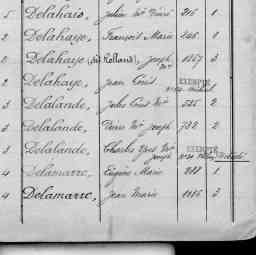 5 Delahaie, Julien Mie Pierre 216 1
2 Delahaye, François Marie 446 1
2 Delahaye, (dit Rolland), Joseph Mie 1857 3
2 Delahaye, Jean Louis EXEMPTÉ
3 Delalande, Jules Louis Mie 735 2
3 Delalande, Pierre Mie Joseph 732 2
3 Delalande, Charles Yves Mie Joseph EXEMPTÉ
4 Delamarre, Eugène Marie 288 1
4 Delamarre, Jean Marie 1186 3